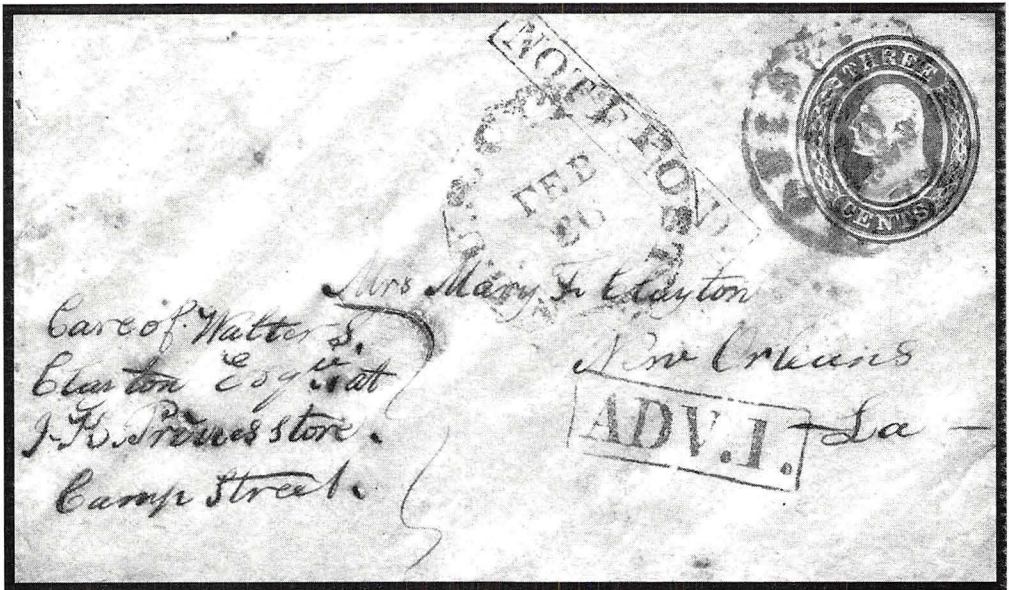 NOT FOUND.
THREE
CENTS
FEB
26
Mrs Mary F. Clayton
New Orleans
La
ADV.1.
Care of Walter S.
Clayton Esqr. at
Store.
Camp Street.